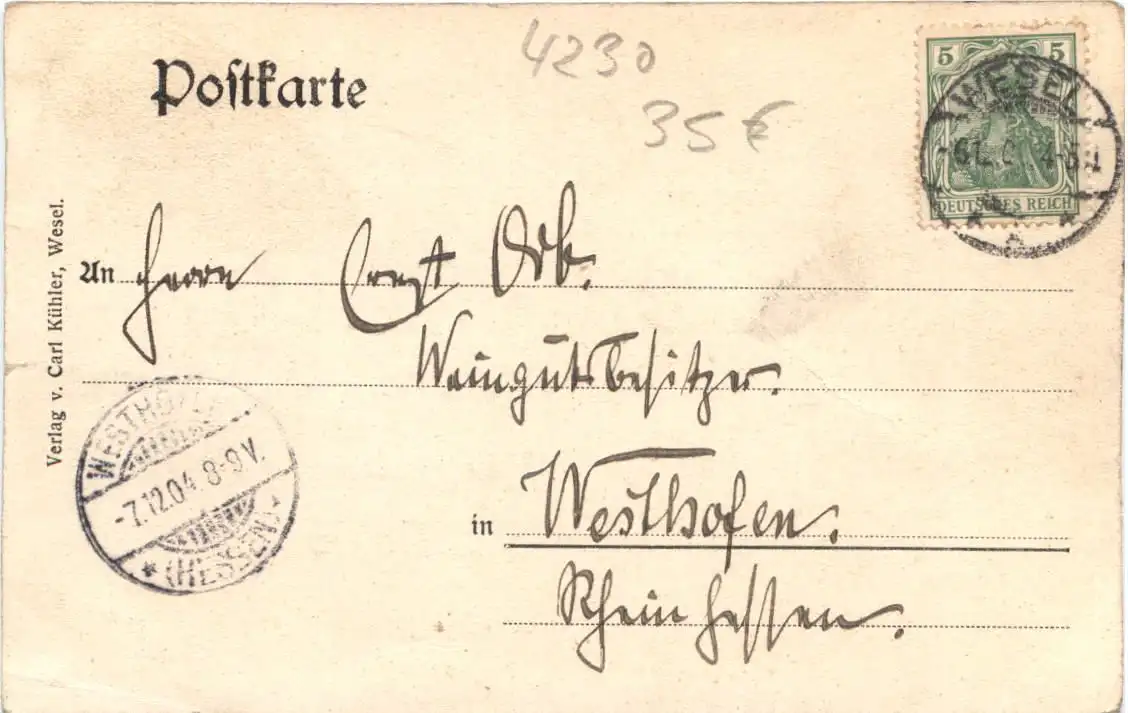 Postkarte
4230
35 €
5 5
DEUTSCHES REICH
WESEL
4-5 N
An Herrn Ernst Orb.
Weingutsbesitzer.
in Westhofen.
Rheinhessen.
Verlag v. Carl Kühler, Wesel.
WESTHOFEN
-7.12.04. 8-9 V.
(HESSEN)